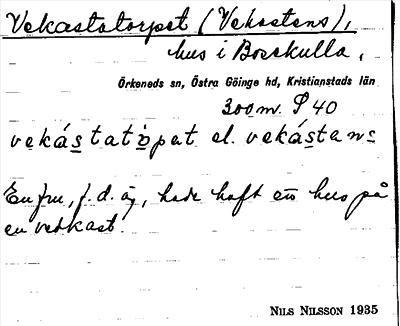 Vekastatorpet (Vekastens),
hus i Boeekulla,
Örkeneds sn, Östra Göinge hd, Kristianstads län
300 m. P 40
vekástatòpat el. vekástans
En fru, f. d. äg, hade haft ett hus på
en vedkast.
NILS NILSSON 1935